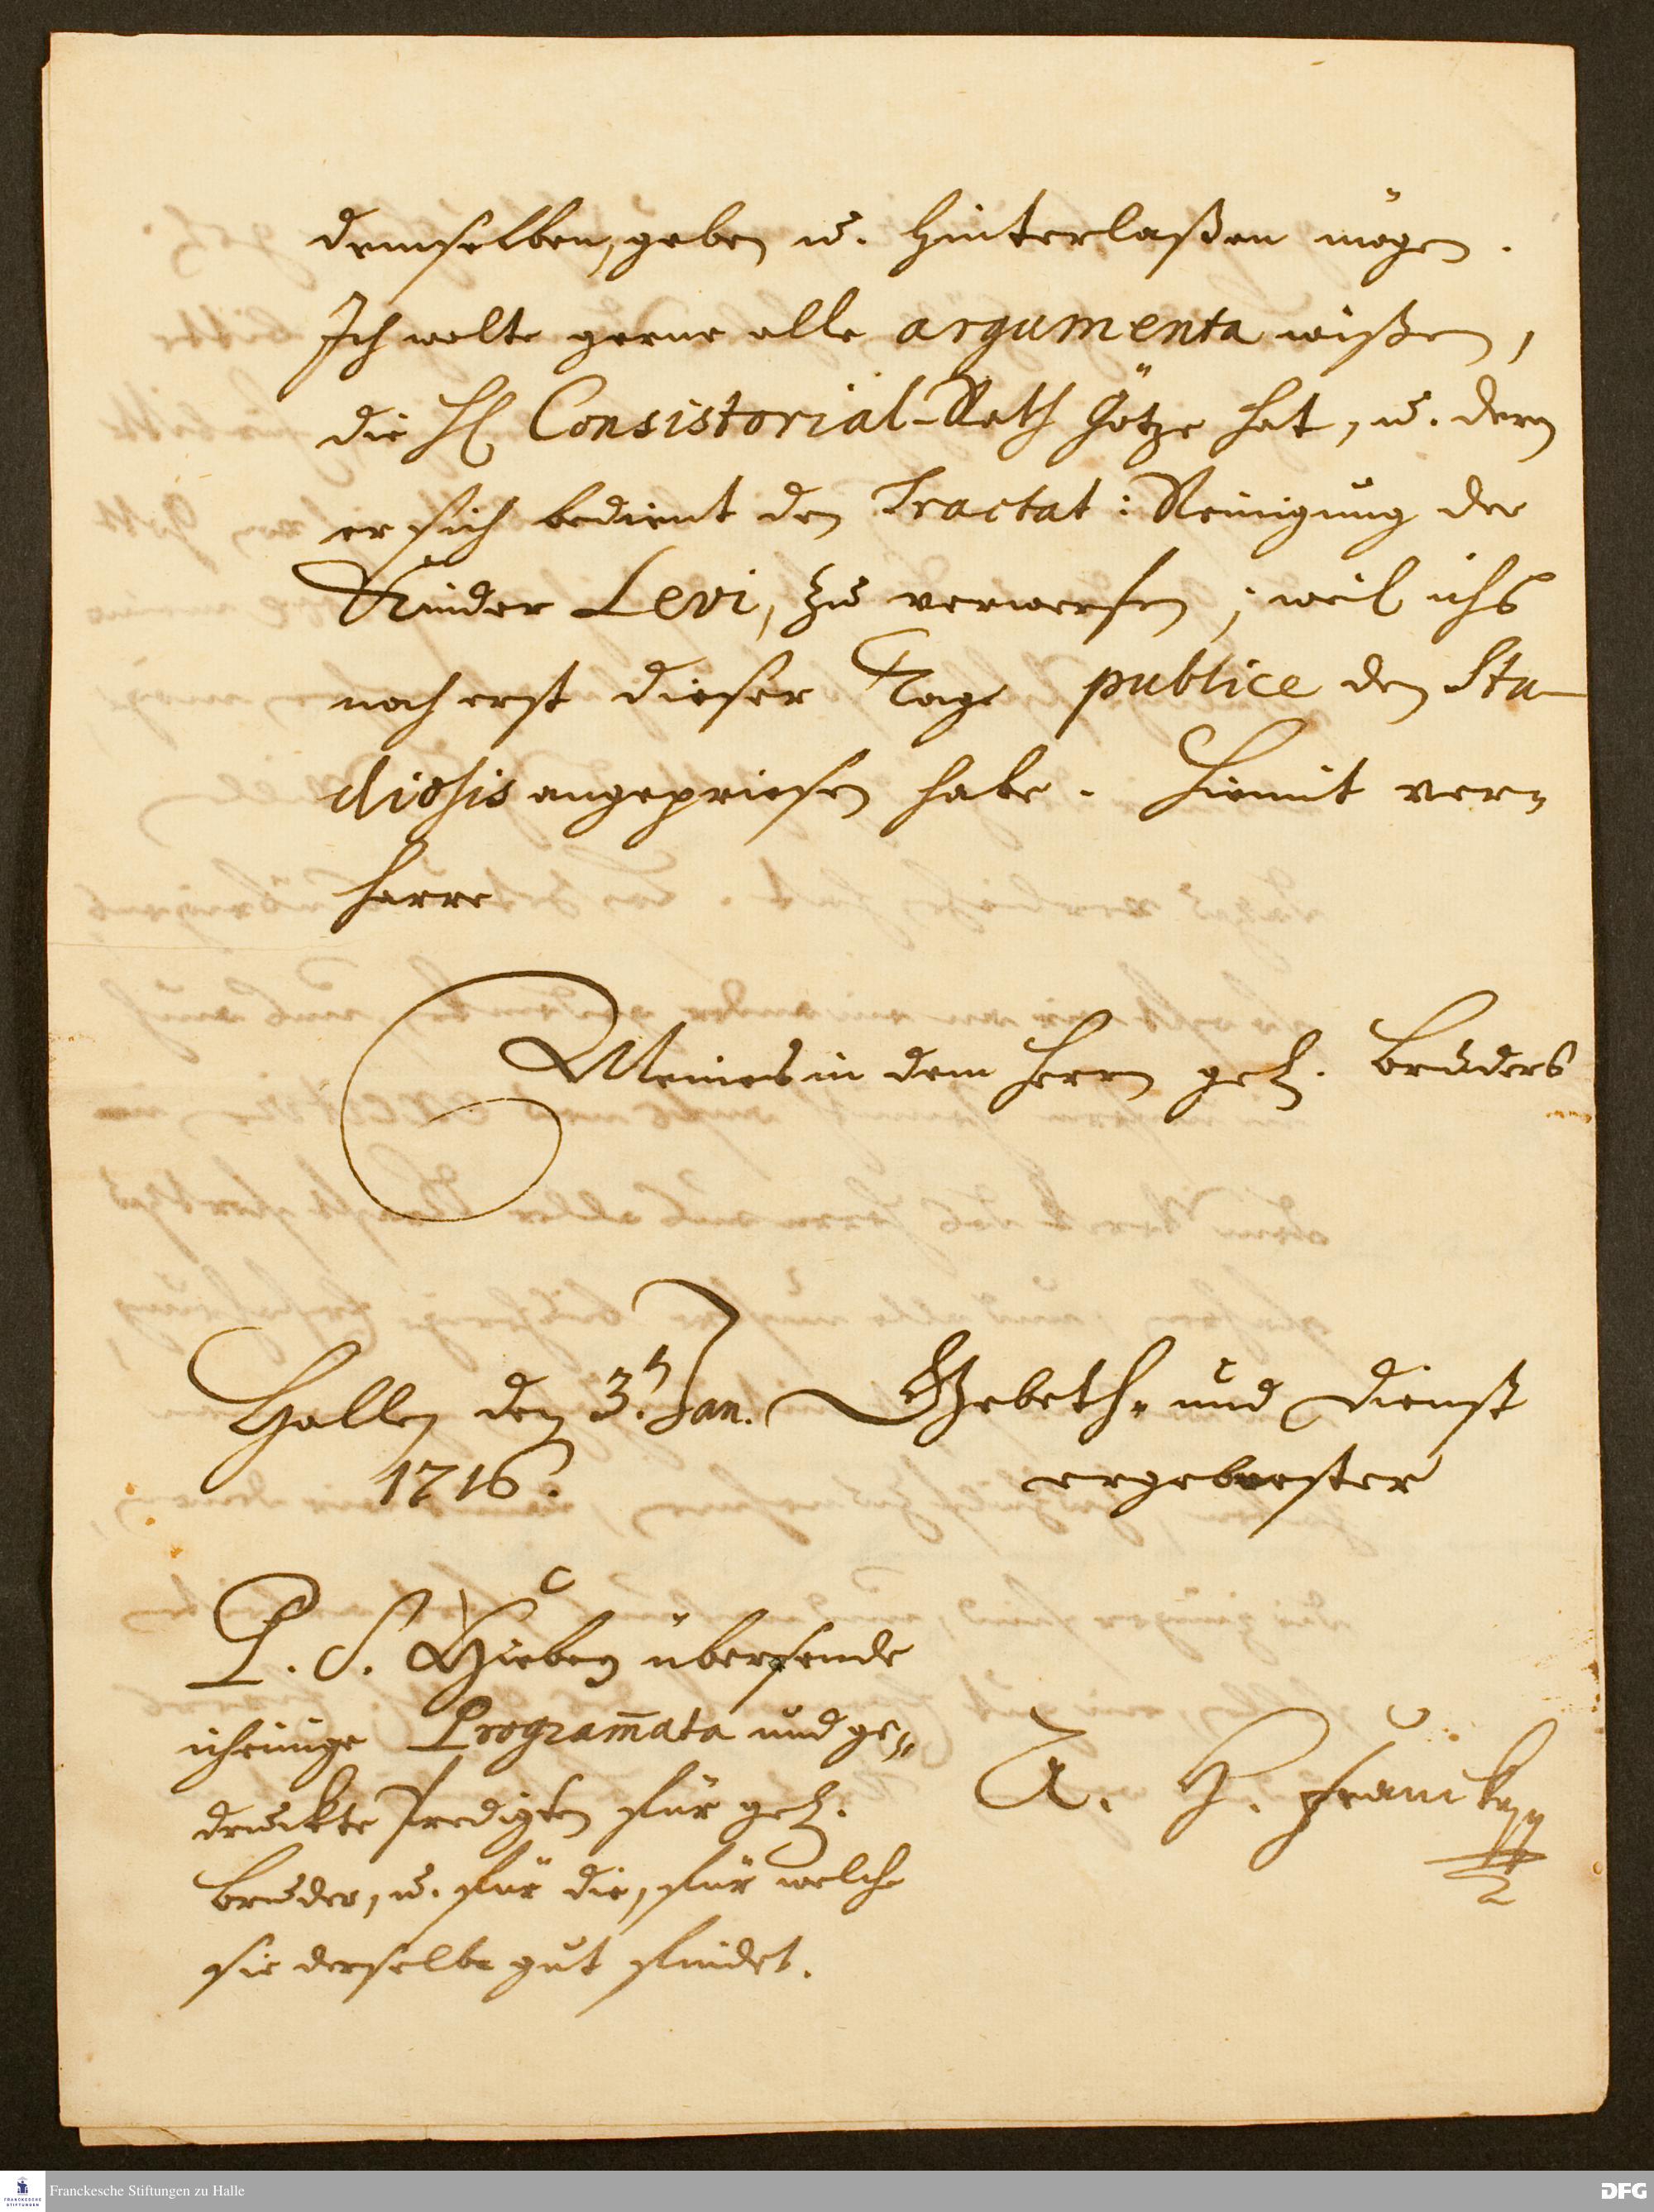 demselben, geben u. hinterlaßen mögen.
Ich wolte gerne alle argumenta wißen,
die H. Consistorial-Rath Götze hat, u. deren
er sich bedient den Tractat: Reinigung der
Kinder Levi, zu verwerfen; weil ichs
noch erst dieser Tage publice den Stu-
diosis angepriesen habe. Hiemit ver-
harre
Meines in dem Herrn gel. Bruders
Hallen den 3.t Jan. Gebeth- und Dienst
1716. ergebenster
P. S. Hieben übersende
ich einige Programmata und ge-
druckte Predigten für gel.
Bruder, u. für die, für welche
sie derselbe gut findet.
A. H. Francke
Franckesche Stiftungen zu Halle
DFG